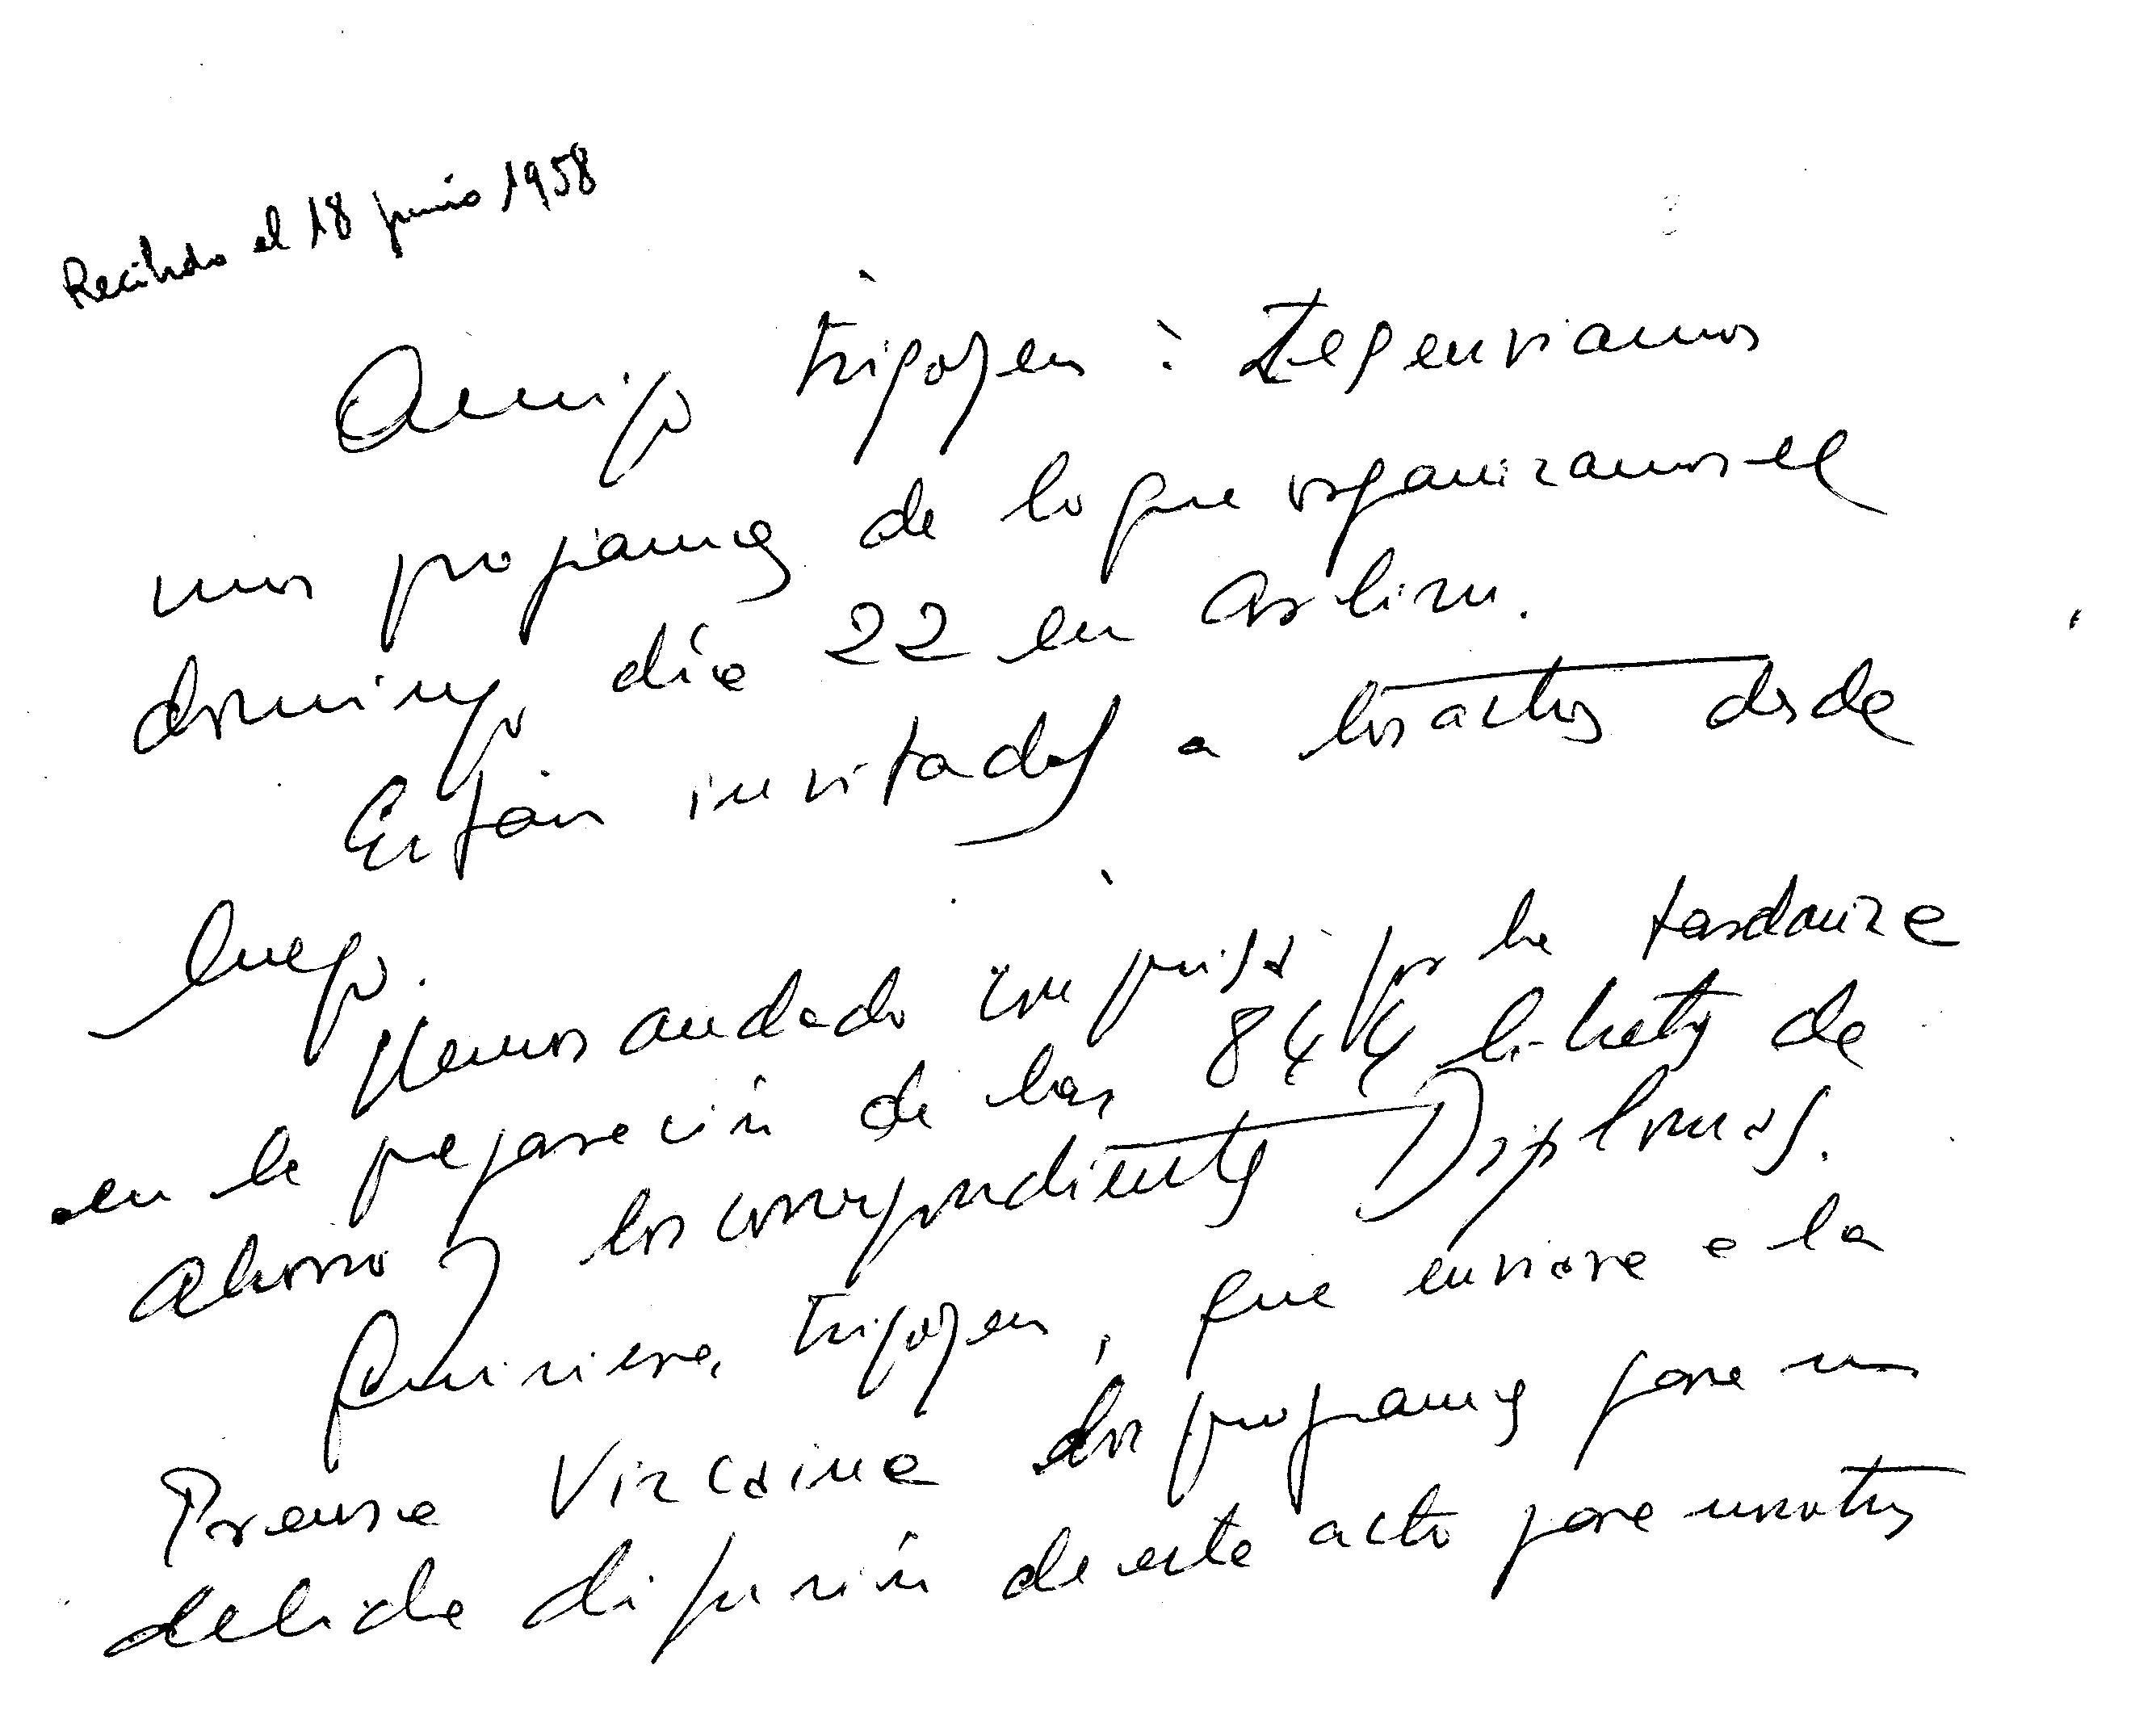 Recibido el 18 junio 1958
Amigo Trigoyen: Les enviamos
unos programas de lo que organizamos el
domingo día 22 en Arlizu.
Están invitados a los actos desde
luego.
Hemos andado con prisa por la tardanza
en la preparación de las 844 libretas de
ahorro y los correspondientes Diplomas.
Quisiera, Trigoyen, que enviara a la
Prensa Vizcaina dos programas para su
debida difusión de este acto para nosotros